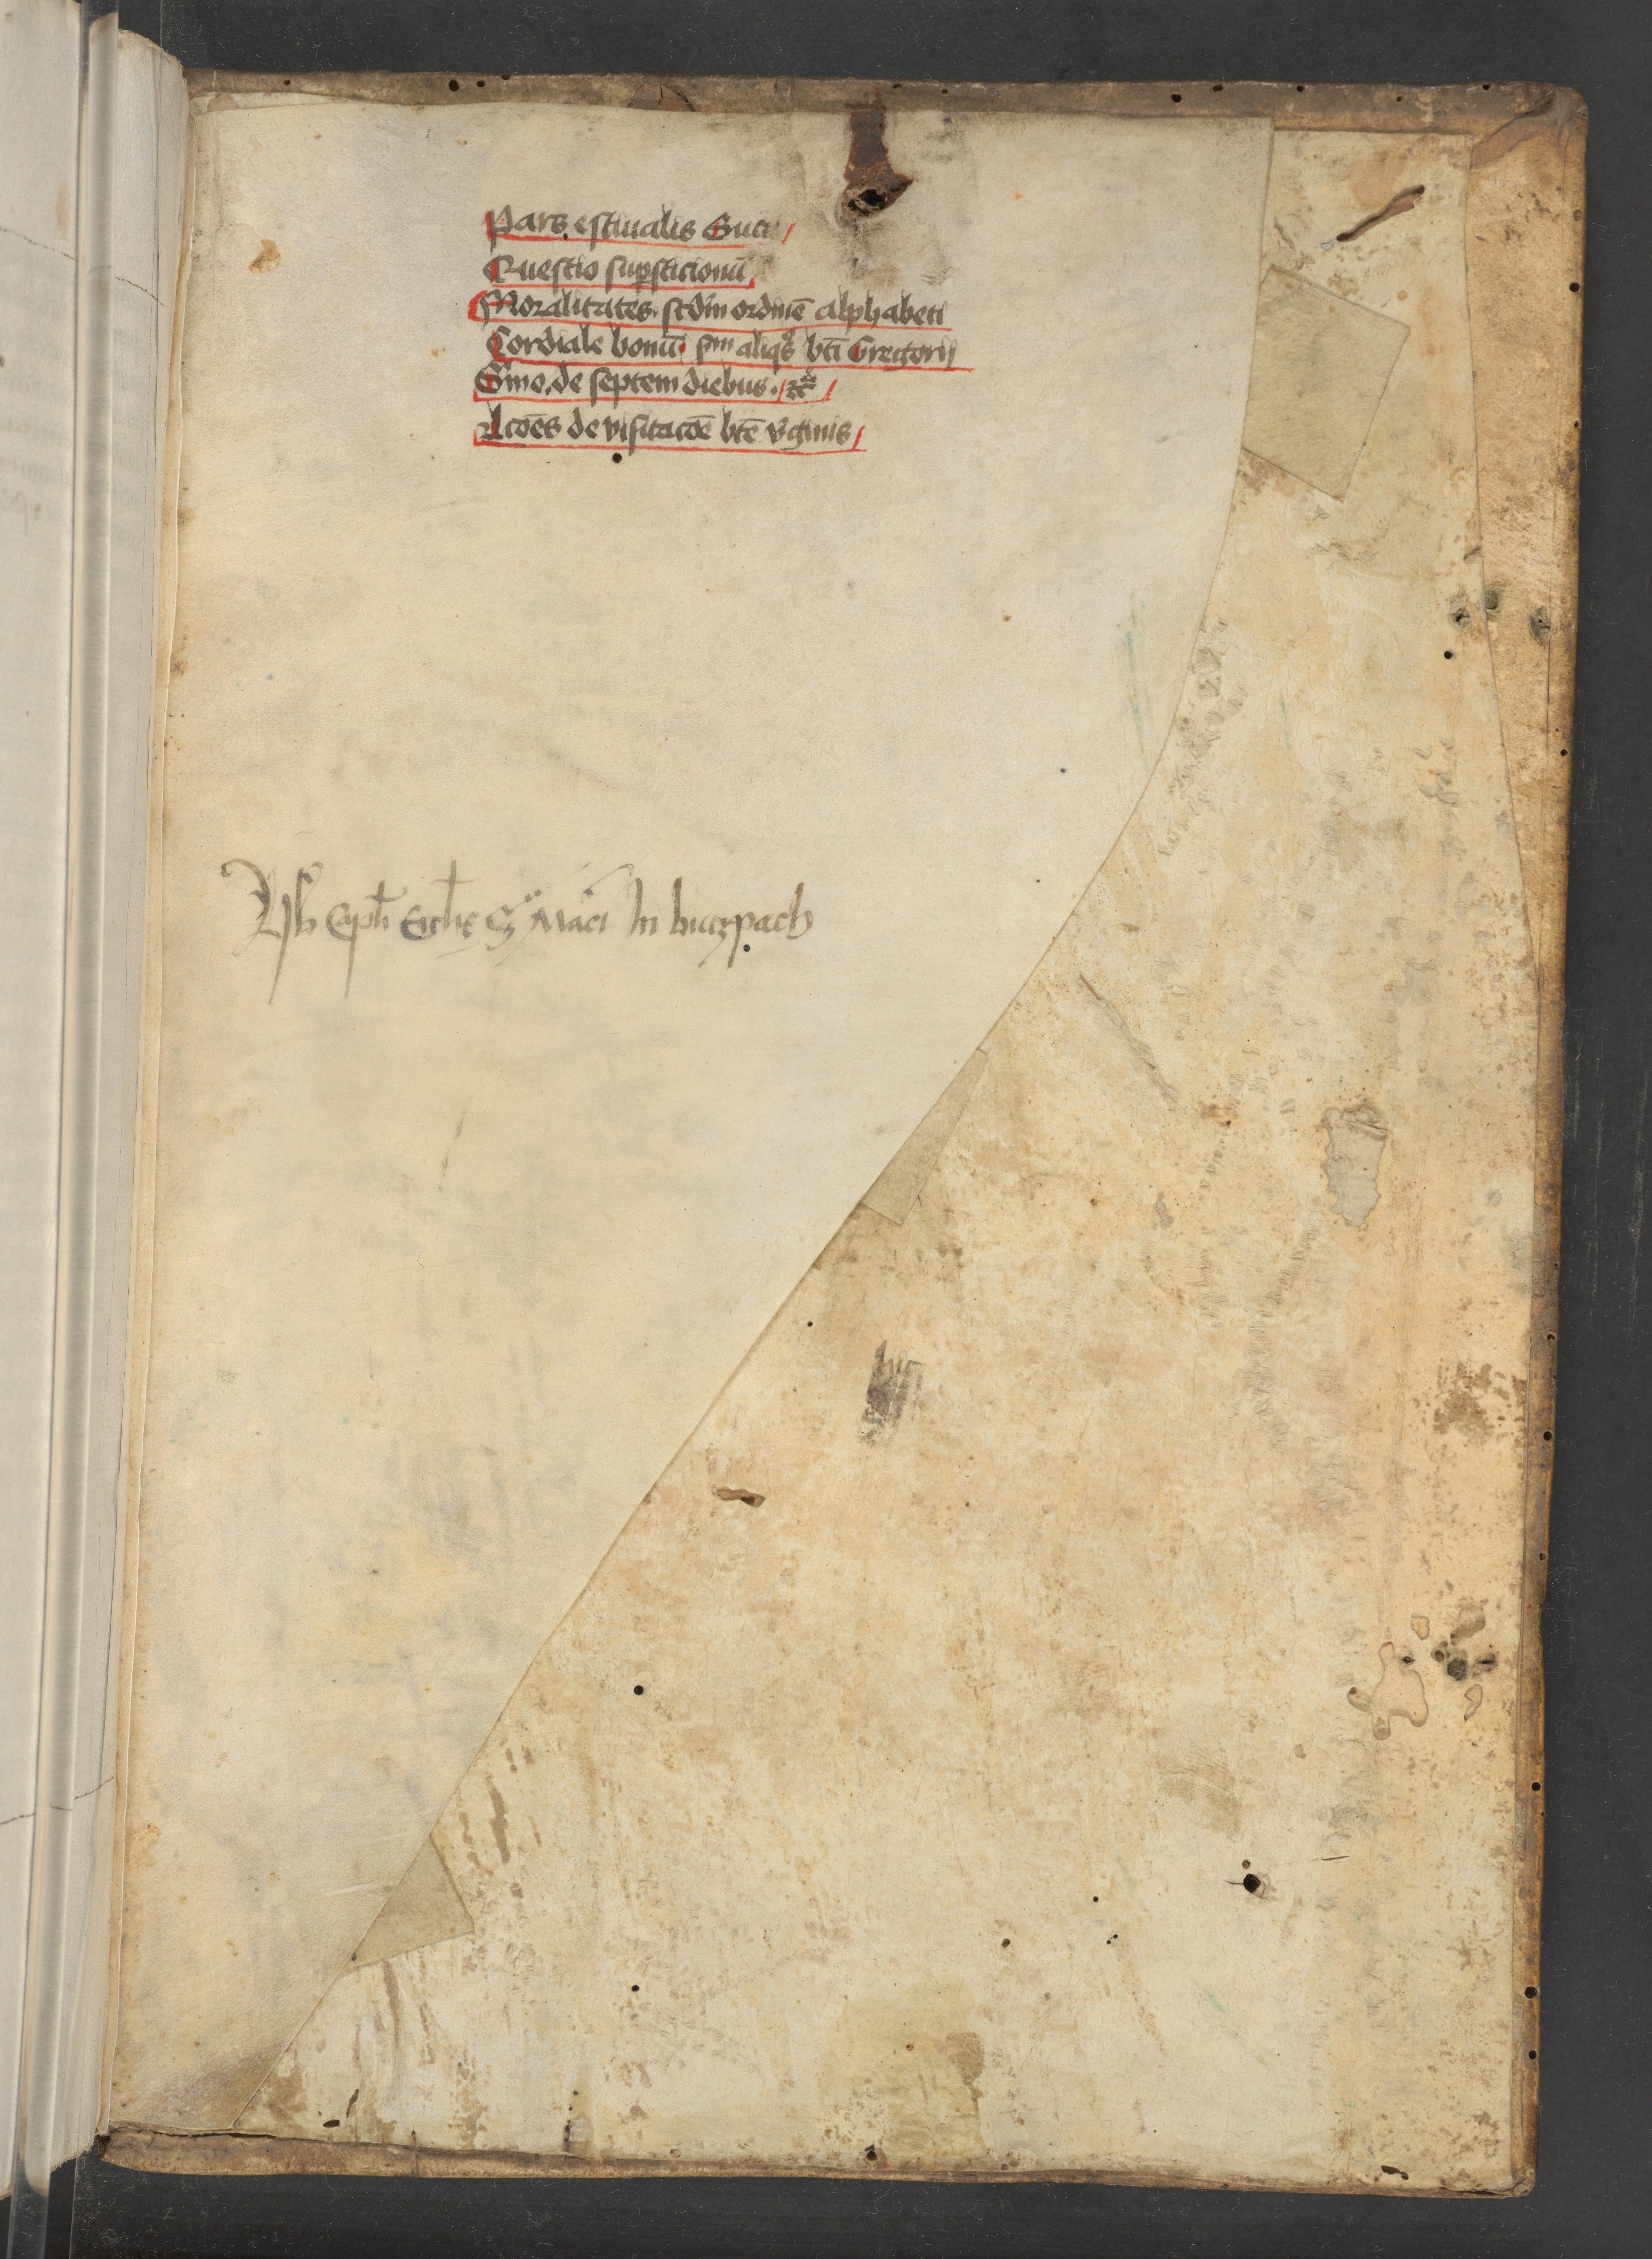 Pars estiualis Guci
Questio suꝑsticionū
Moralitates scd̄m ordinē alphabeti
Cordiale bonū sm̄ aliqͦs bt̄i Gregorij
S̄mo de septem diebus
Lcōes de visitacōe bt̄e v̓ginis
Lib̓ Capl̓i Eccl̓ie S Marci In butzpach